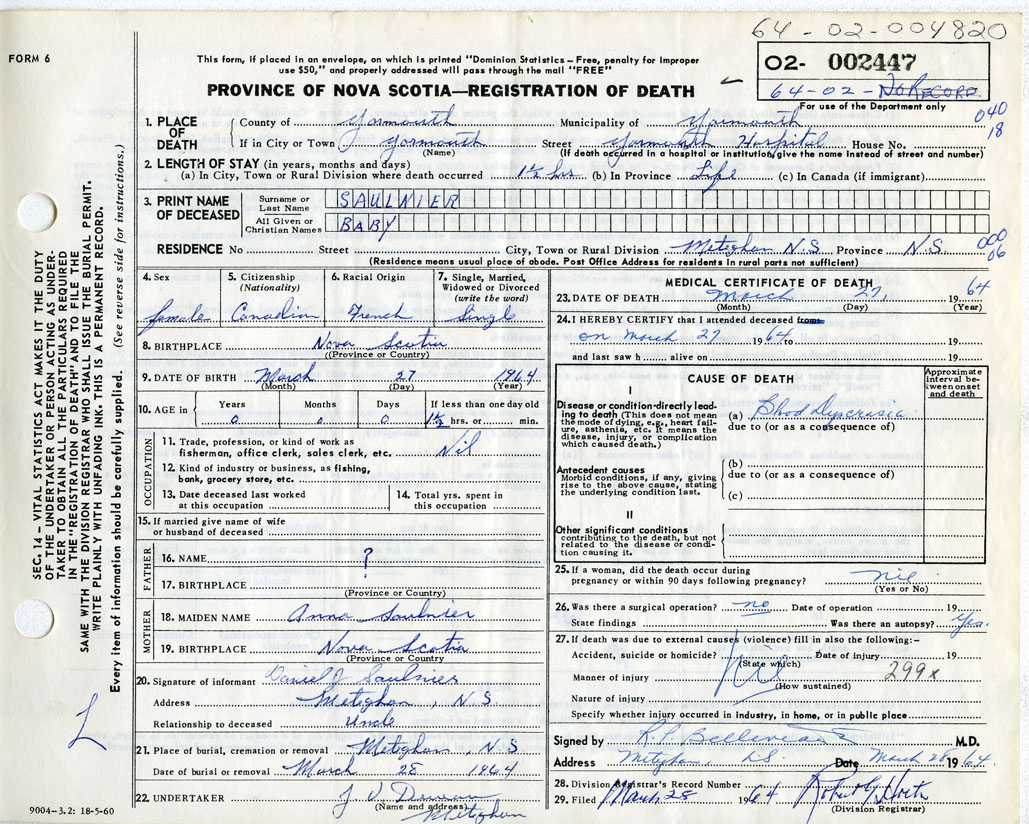 64-02-004820
FORM 6
This form, if placed in an envelope, on which is printed "Dominion Statistics – Free, penalty for improper
use $50," and properly addressed will pass through the mail "FREE"
02- 002447
64-02- No RECORD
PROVINCE OF NOVA SCOTIA—REGISTRATION OF DEATH
For use of the Department only
040
18
1. PLACE OF DEATH
County of Yarmouth Municipality of Yarmouth
If in City or Town Yarmouth Street Yarmouth Hospital House No.
(Name) (If death occurred in a hospital or institution, give the name instead of street and number)
2. LENGTH OF STAY (in years, months and days)
(a) In City, Town or Rural Division where death occurred 1½ hrs (b) In Province Life (c) In Canada (if immigrant)
3. PRINT NAME OF DECEASED
Surname or Last Name SAULNIER
All Given or Christian Names BABY
RESIDENCE No Street City, Town or Rural Division Meteghan N.S. Province N.S.
000
06
(Residence means usual place of abode. Post Office Address for residents in rural parts not sufficient)
4. Sex
female
5. Citizenship
(Nationality)
Canadian
6. Racial Origin
French
7. Single, Married,
Widowed or Divorced
(write the word)
Single
8. BIRTHPLACE Nova Scotia
((Province or Country)
9. DATE OF BIRTH March 27 1964
(Month) (Day) (Year)
10. AGE in
Years Months Days If less than one day old
0 0 0 1½ hrs. or min.
OCCUPATION
11. Trade, profession, or kind of work as
fisherman, office clerk, sales clerk, etc. Nil
12. Kind of industry or business, as fishing,
bank, grocery store, etc.
13. Date deceased last worked
at this occupation
14. Total yrs. spent in
this occupation
15. If married give name of wife
or husband of deceased
FATHER
16. NAME ?
17. BIRTHPLACE
(Province or Country)
MOTHER
18. MAIDEN NAME Anna Saulnier
19. BIRTHPLACE Nova Scotia
(Province or Country
20. Signature of informant Daniel J Saulnier
Address Meteghan, N.S.
Relationship to deceased Uncle
21. Place of burial, cremation or removal Meteghan, N S
Date of burial or removal March 28 1964
22. UNDERTAKER J V
(Name and address)
Meteghan
9004-3.2: 18-5-60
MEDICAL CERTIFICATE OF DEATH
23. DATE OF DEATH March 27, 1964
(Month) (Day) (Year)
24. I HEREBY CERTIFY that I attended deceased from
on March 27 1964 to
19
and last saw h alive on 19
CAUSE OF DEATH
Approximate
interval be-
tween onset
and death
I
Disease or condition-directly lead-
ing to death (This does not mean
the mode of dying, e.g., heart fail-
ure, asthenia, etc. It means the
disease, injury, or complication
which caused death.)
(a) Blood Dyscrasia
due to (or as a consequence of)
Antecedent causes
Morbid conditions, if any, giving
rise to the above cause, stating
the underlying condition last.
(b)
due to (or as a consequence of)
(c)
II
Other significant conditions
contributing to the death, but not
related to the disease or condi-
tion causing it.
25. If a woman, did the death occur during
pregnancy or within 90 days following pregnancy? nil
(Yes or No)
26. Was there a surgical operation? no Date of operation 19
State findings Was there an autopsy? Yes.
27. If death was due to external causes (violence) fill in also the following:–
Accident, suicide or homicide? Date of injury 19
(State which)
Manner of injury Nil 299x
(How sustained)
Nature of injury
Specify whether injury occurred in Industry, in home, or in public place
Signed by R.P. Belliveau M.D.
Address Meteghan, N.S. Date March 28 1964.
28. Division Registrar's Record Number
29. Filed March 28 1964
(Division Registrar)
SEC. 14 – VITAL STATISTICS ACT MAKES IT THE DUTY
OF THE UNDERTAKER OR PERSON ACTING AS UNDER-
TAKER TO OBTAIN ALL THE PARTICULARS REQUIRED
IN THE "REGISTRATION OF DEATH" AND TO FILE THE
SAME WITH THE DIVISION REGISTRAR WHO SHALL ISSUE THE BURIAL PERMIT.
WRITE PLAINLY WITH UNFADING INK. THIS IS A PERMANENT RECORD.
Every item of information should be carefully supplied. (See reverse side for instructions.)